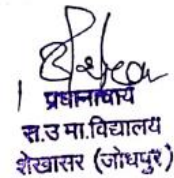 प्रधानाचार्य
स.उ मा.विद्यालय
शेखासर (जोधपुर)